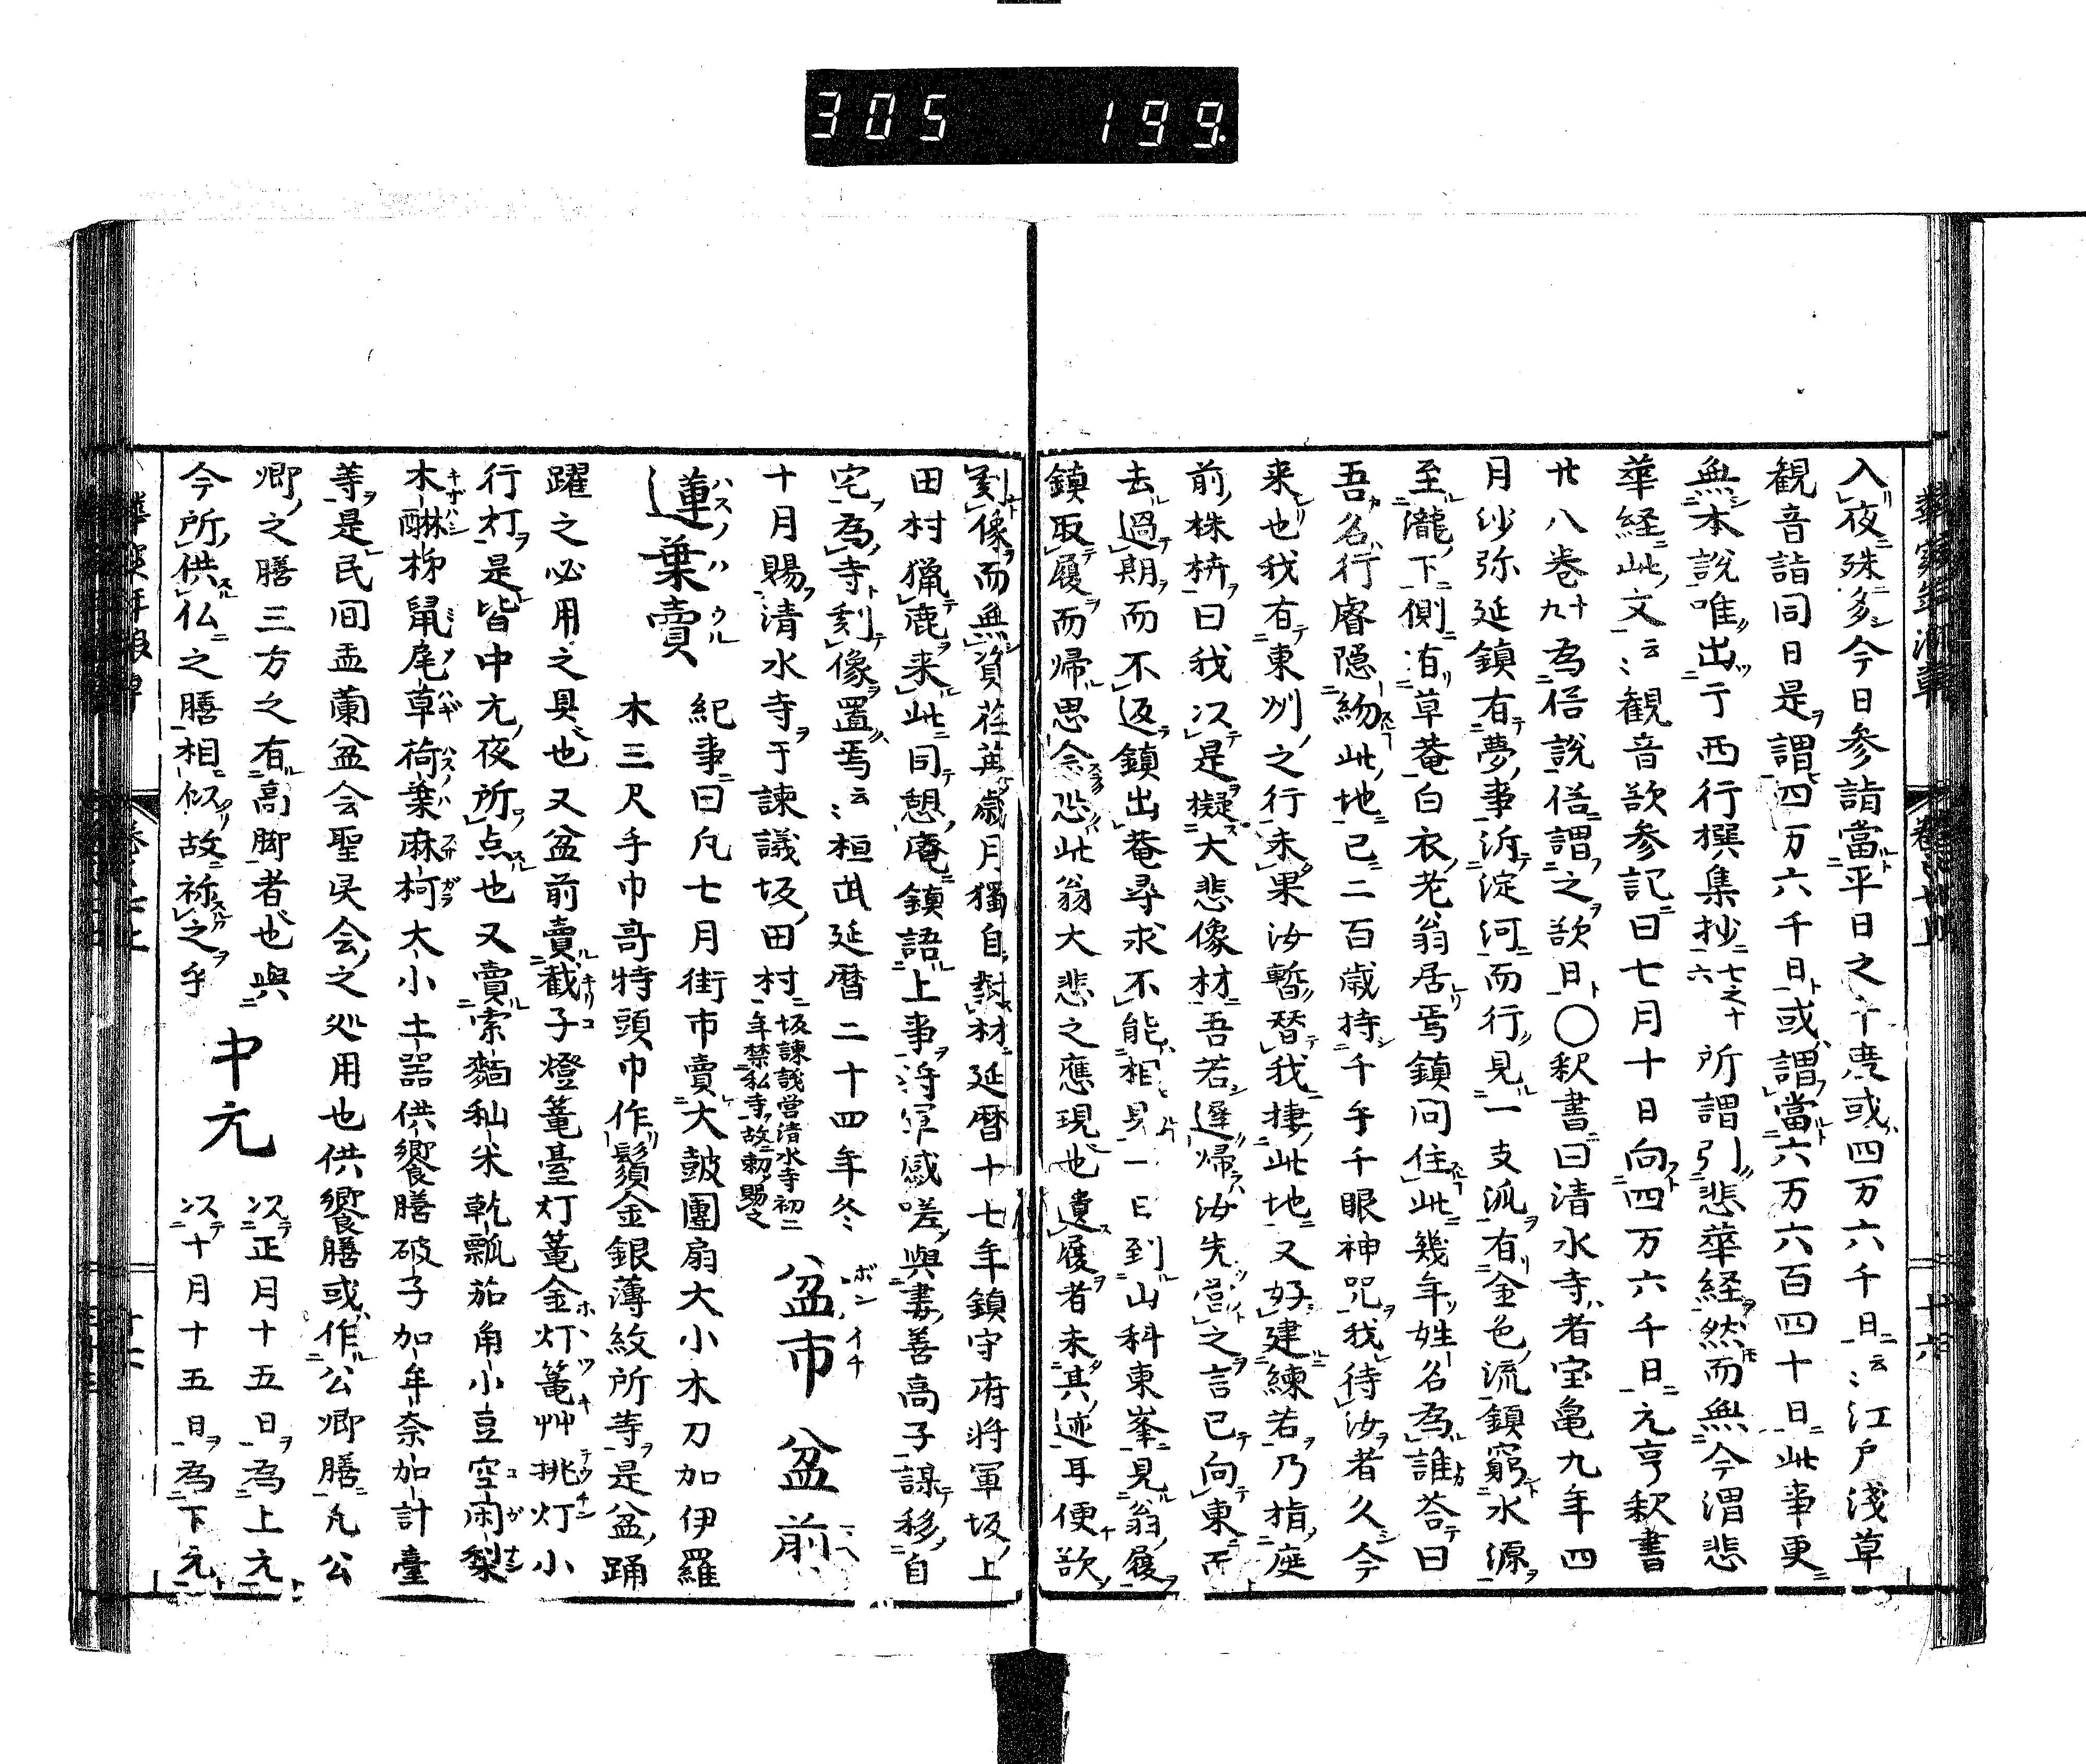 305 199
入夜殊多今日参詣當平日之千度或四万六千日云〻江戸淺草
観音詣同日是謂四万六千日或謂當六万六百四十日此事更
無本説唯出于西行撰集抄七之十六所謂引悲華経然而無今謂悲
華経此文云〻観音欲参記曰七月十日向四万六千日元亨釈書
廿八巻十九為俗説俗謂之欲日〇釈書曰清水寺者宝亀九年四
月沙弥延鎮有夢事泝淀河而行見一支流有金色流鎮窮水源
至瀧下側有草菴白衣老翁居焉鎮问住此幾年姓名為誰荅曰
吾名行睿隠紛此地已二百歳持千手千眼神咒我待汝者久今
来也我有東州之行未果汝暫替我捿此地又好建練若乃指庭
前株栟曰我以是擬大悲像材吾若遅帰汝先営之言已向東而
去過期而不返鎮出菴尋求不能相見一日到山科東峯見翁履
鎮取履而帰思念恐此翁大悲之應現也遺履者未其迹耳便欲
刻像而無資荏苒歳月獨自對材延暦十七年鎮守府将軍坂上
田村獵鹿来此同憩庵鎮語上事将軍感嗟與妻善高子謀移自
宅為寺刻像置焉云〻桓武延暦二十四年冬 盆市 盆前
十月賜清水寺于諫議坂田村坂諫議営清水寺初二年禁私寺故勅賜之
蓮葉賣 紀事曰凡七月街市賣大皷團扇大小木刀加伊羅
木三尺手巾哥特頭巾作鬚金銀薄紋所等是盆踊
躍之必用之具也又盆前賣截子燈篭臺灯篭金灯篭艸挑灯小
行灯是皆中元夜所点也又賣索麺秈米乾瓢茄角小豆空閑梨
木醂柹鼠尾草荷葉麻柯大小土器供饗膳破子加牟奈加計臺
等是民间盂蘭盆会聖灵会之処用也供饗膳或作公卿膳凡公
卿之膳三方之有高脚者也與 中元 以正月十五日為上元
今所供仏之膳相似故称之乎 以十月十五日為下元